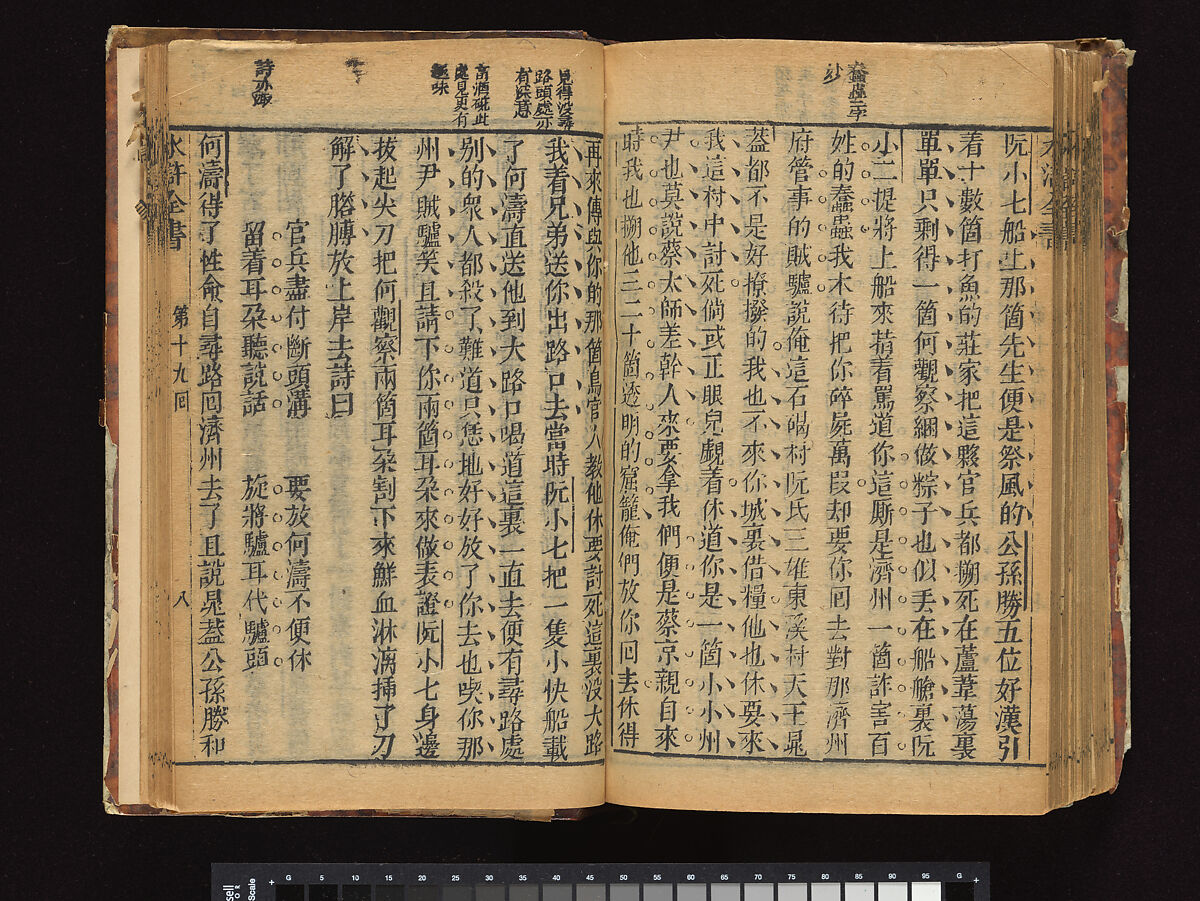 蠢虫二字
妙
阮小七船上那箇先生便是祭風的公孫勝五位好漢引
着十數箇打魚的莊家把這夥官兵都搠死在蘆葦蕩裏
單單只剩得一箇何觀察綑做粽子也似丟在船艙裏阮
小二提將上船來指着罵道你這厮是濟州一箇詐害百
姓的蠢蟲我本待把你碎屍萬段却要你回去對那濟州
府管事的賊驢說俺這石碣村阮氏三雄東溪村天王晁
蓋都不是好撩撥的我也不來你城裏借糧他也休要來
我這村中討死倘或正眼兒覷着休道你是一箇小小州
尹也莫說蔡太師差幹人來要拿我們便是蔡京親自來
時我也搠他三二十箇透明的窟籠俺們放你回去休得
見得沒尋
路頭處亦
有深意
再來傳與你的那箇鳥官人教他休要討死這裏沒大路
我着兄弟送你出路口去當時阮小七把一隻小快船載
了何濤直送他到大路口喝道這裏一直去便有尋路處
別的衆人都殺了難道只恁地好好放了你去也喫你那
州尹賊驢笑且請下你兩箇耳朶來做表證阮小七身邊
拔起尖刀把何觀察兩箇耳朶割下來鮮血淋漓揷了刀
解了胳膊放上岸去詩曰
詩亦趣
官兵盡付斷頭溝 要放何濤不便休
留着耳朶聽說話 旋將驢耳代驢頭
何濤得了性命自尋路回濟州去了且說晁蓋公孫勝和
水滸全書 第十九回 八